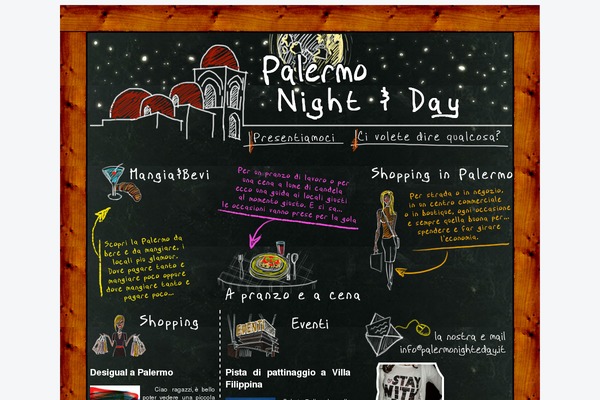 Palermo
Night & Day
Presentiamoci
Ci volete dire qualcosa?
Mangia&Bevi
Per un pranzo di lavoro o per
una cena a lume di candela
ecco una guida ai locali giusti
al momento giusto. E si sa...
le occasioni vanno prese per la gola
Shopping in Palermo
Per strada o in negozio,
in un centro commerciale
o in boutique, ogni occasione
è sempre quella buona per...
spendere e far girare
l'economia.
Scopri la Palermo da
bere e da mangiare, i
locali più glamour.
Dove pagare tanto e
mangiare poco oppure
dove mangiare tanto e
pagare poco...
A pranzo e a cena
Shopping
EVENTI
Eventi
la nostra e mail
info@palermonighteday.it
Desigual a Palermo
Ciao ragazzi, è bello
poter vedere una piccola
Pista di pattinaggio a Villa
Filippina
STAY
WITH